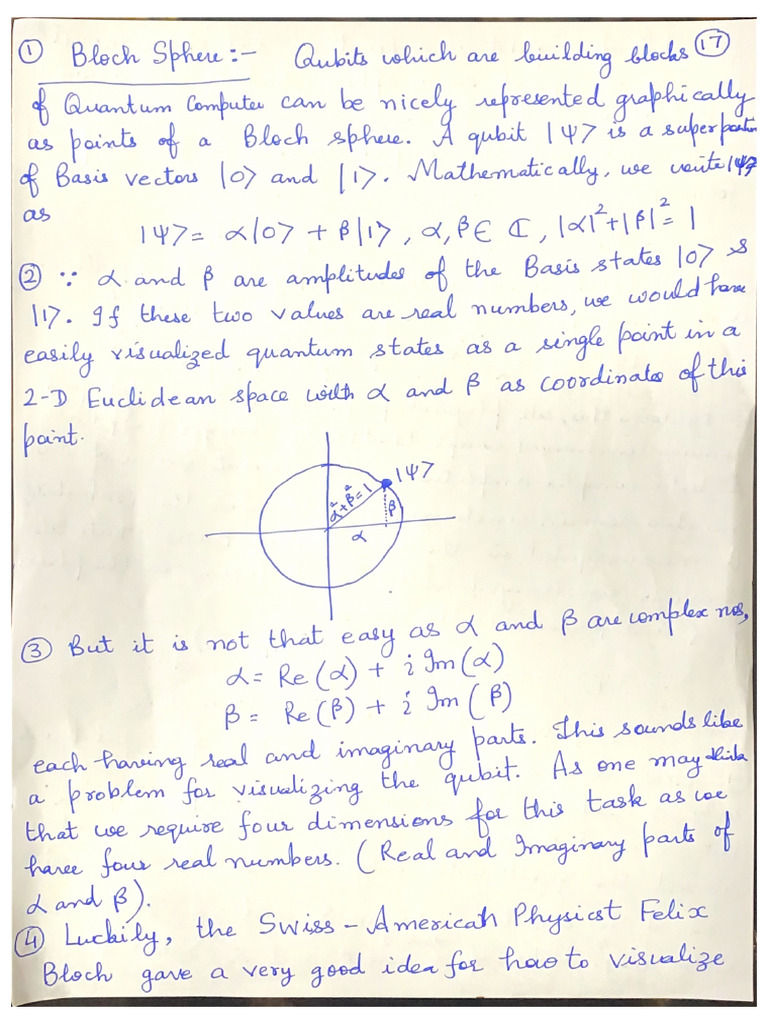 ① Bloch Sphere:- Qubits which are building blocks ⑰
of Quantum Computer can be nicely represented graphically
as points of a Bloch sphere. A qubit |Ψ> is a superposition
of Basis vectors |0> and |1>. Mathematically, we write |Ψ>
as
|Ψ> = α|0> + β|1>, α, β ∈ ℂ, |α|² + |β|² = 1
② ∵ α and β are amplitudes of the Basis states |0> &
|1>. If these two values are real numbers, we would have
easily visualized quantum states as a single point in a
2-D Euclidean space with α and β as coordinates of this
point.
|Ψ>
α²+β²=1
β
α
③ But it is not that easy as α and β are complex nos,
α = Re(α) + i Im(α)
β = Re(β) + i Im(β)
each having real and imaginary parts. This sounds like
a problem for visualizing the qubit. As one may think
that we require four dimensions for this task as we
have four real numbers. (Real and Imaginary parts of
α and β).
④ Luckily, the Swiss-American Physicist Felix
Bloch gave a very good idea for how to visualize